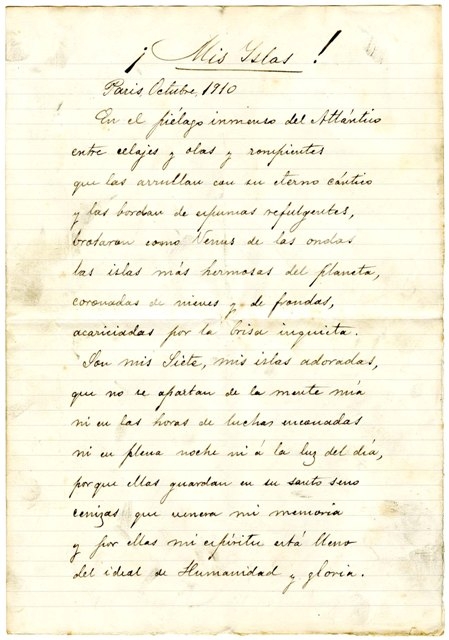 ¡Mis Islas!
Paris, Octubre, 1910
En el piélago inmenso del Atlántico
entre celajes y olas y rompientes
que las arrullan con su eterno cántico
y las bordan de espumas refulgentes,
brotaron como Venus de las ondas
las islas más hermosas del planeta,
coronadas de nieves y de frondas,
acariciadas por la brisa inquieta.
Son mis Siete, mis islas adoradas,
que no se apartan de la mente mía
ni en las horas de luchas enconadas
ni en plena noche ni á la luz del día,
porque ellas guardan en su santo seno
cenizas que venera mi memoria
y por ellas mi espíritu está lleno
del ideal de Humanidad y gloria.